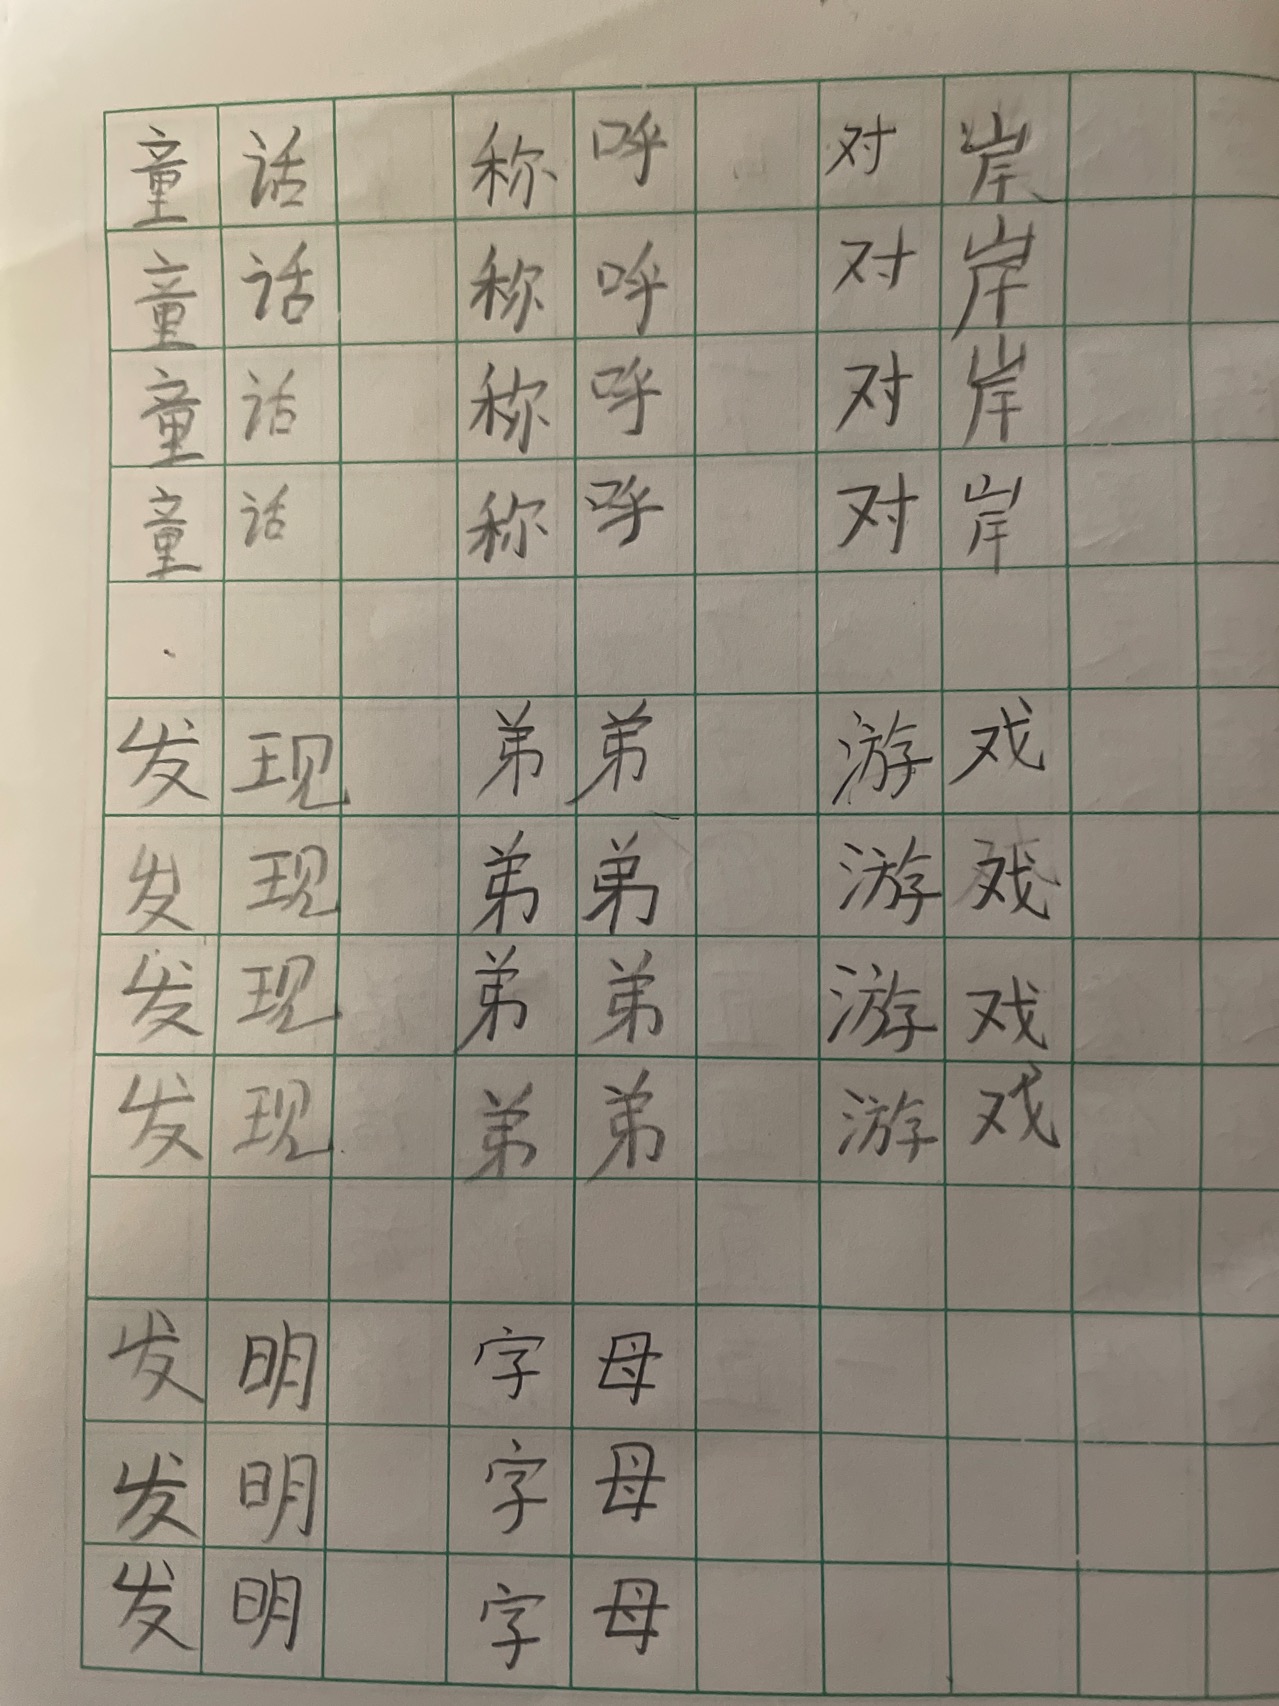 童话 称呼 对岸
童话 称呼 对岸
童话 称呼 对岸
童话 称呼 对岸
发现 弟弟 游戏
发现 弟弟 游戏
发现 弟弟 游戏
发现 弟弟 游戏
发明 字母
发明 字母
发明 字母